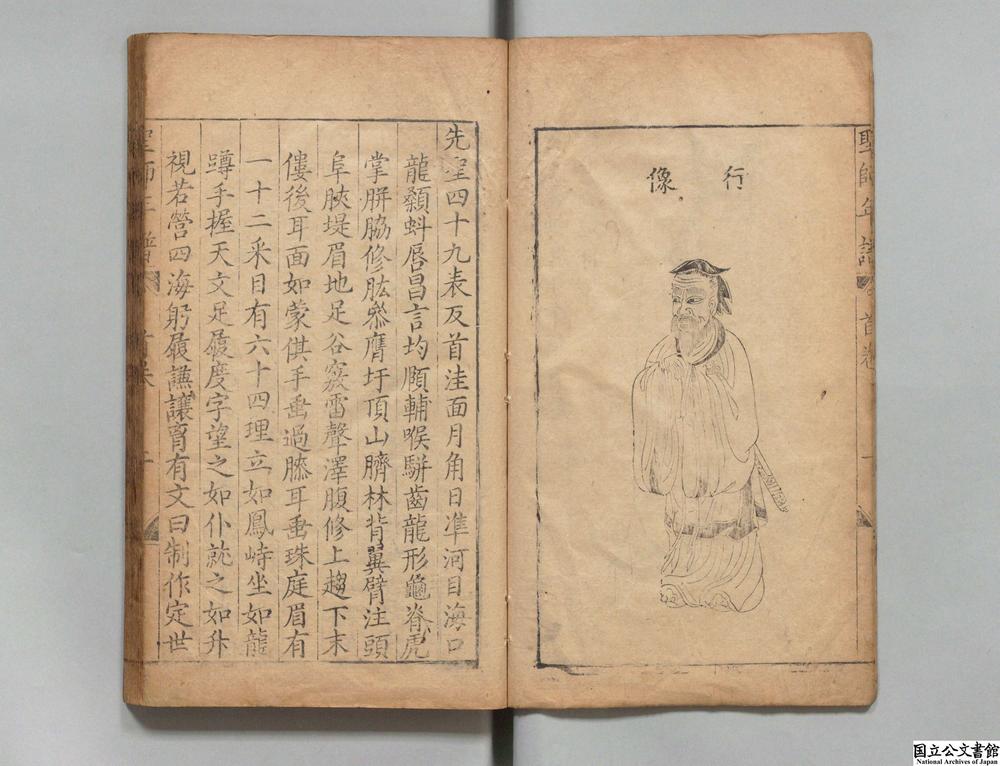 聖師年譜 首卷
行像
先聖四十九表反首洼面月角日準河目海口
龍顙蚪唇昌言均頤輔喉駢齒龍形龜脊虎
掌胼脇修肱叅膺圩頂山臍林背翼臂注頭
阜腴堤眉地足谷竅雷聲澤腹修上趨下末
僂後耳面如蒙倛手垂過膝耳垂珠庭眉有
一十二采目有六十四理立如鳳峙坐如龍
蹲手握天文足履度字望之如仆就之如升
視若營四海躬履謙讓胷有文曰制作定世
聖師年譜 首卷
国立公文書館
National Archives of Japan